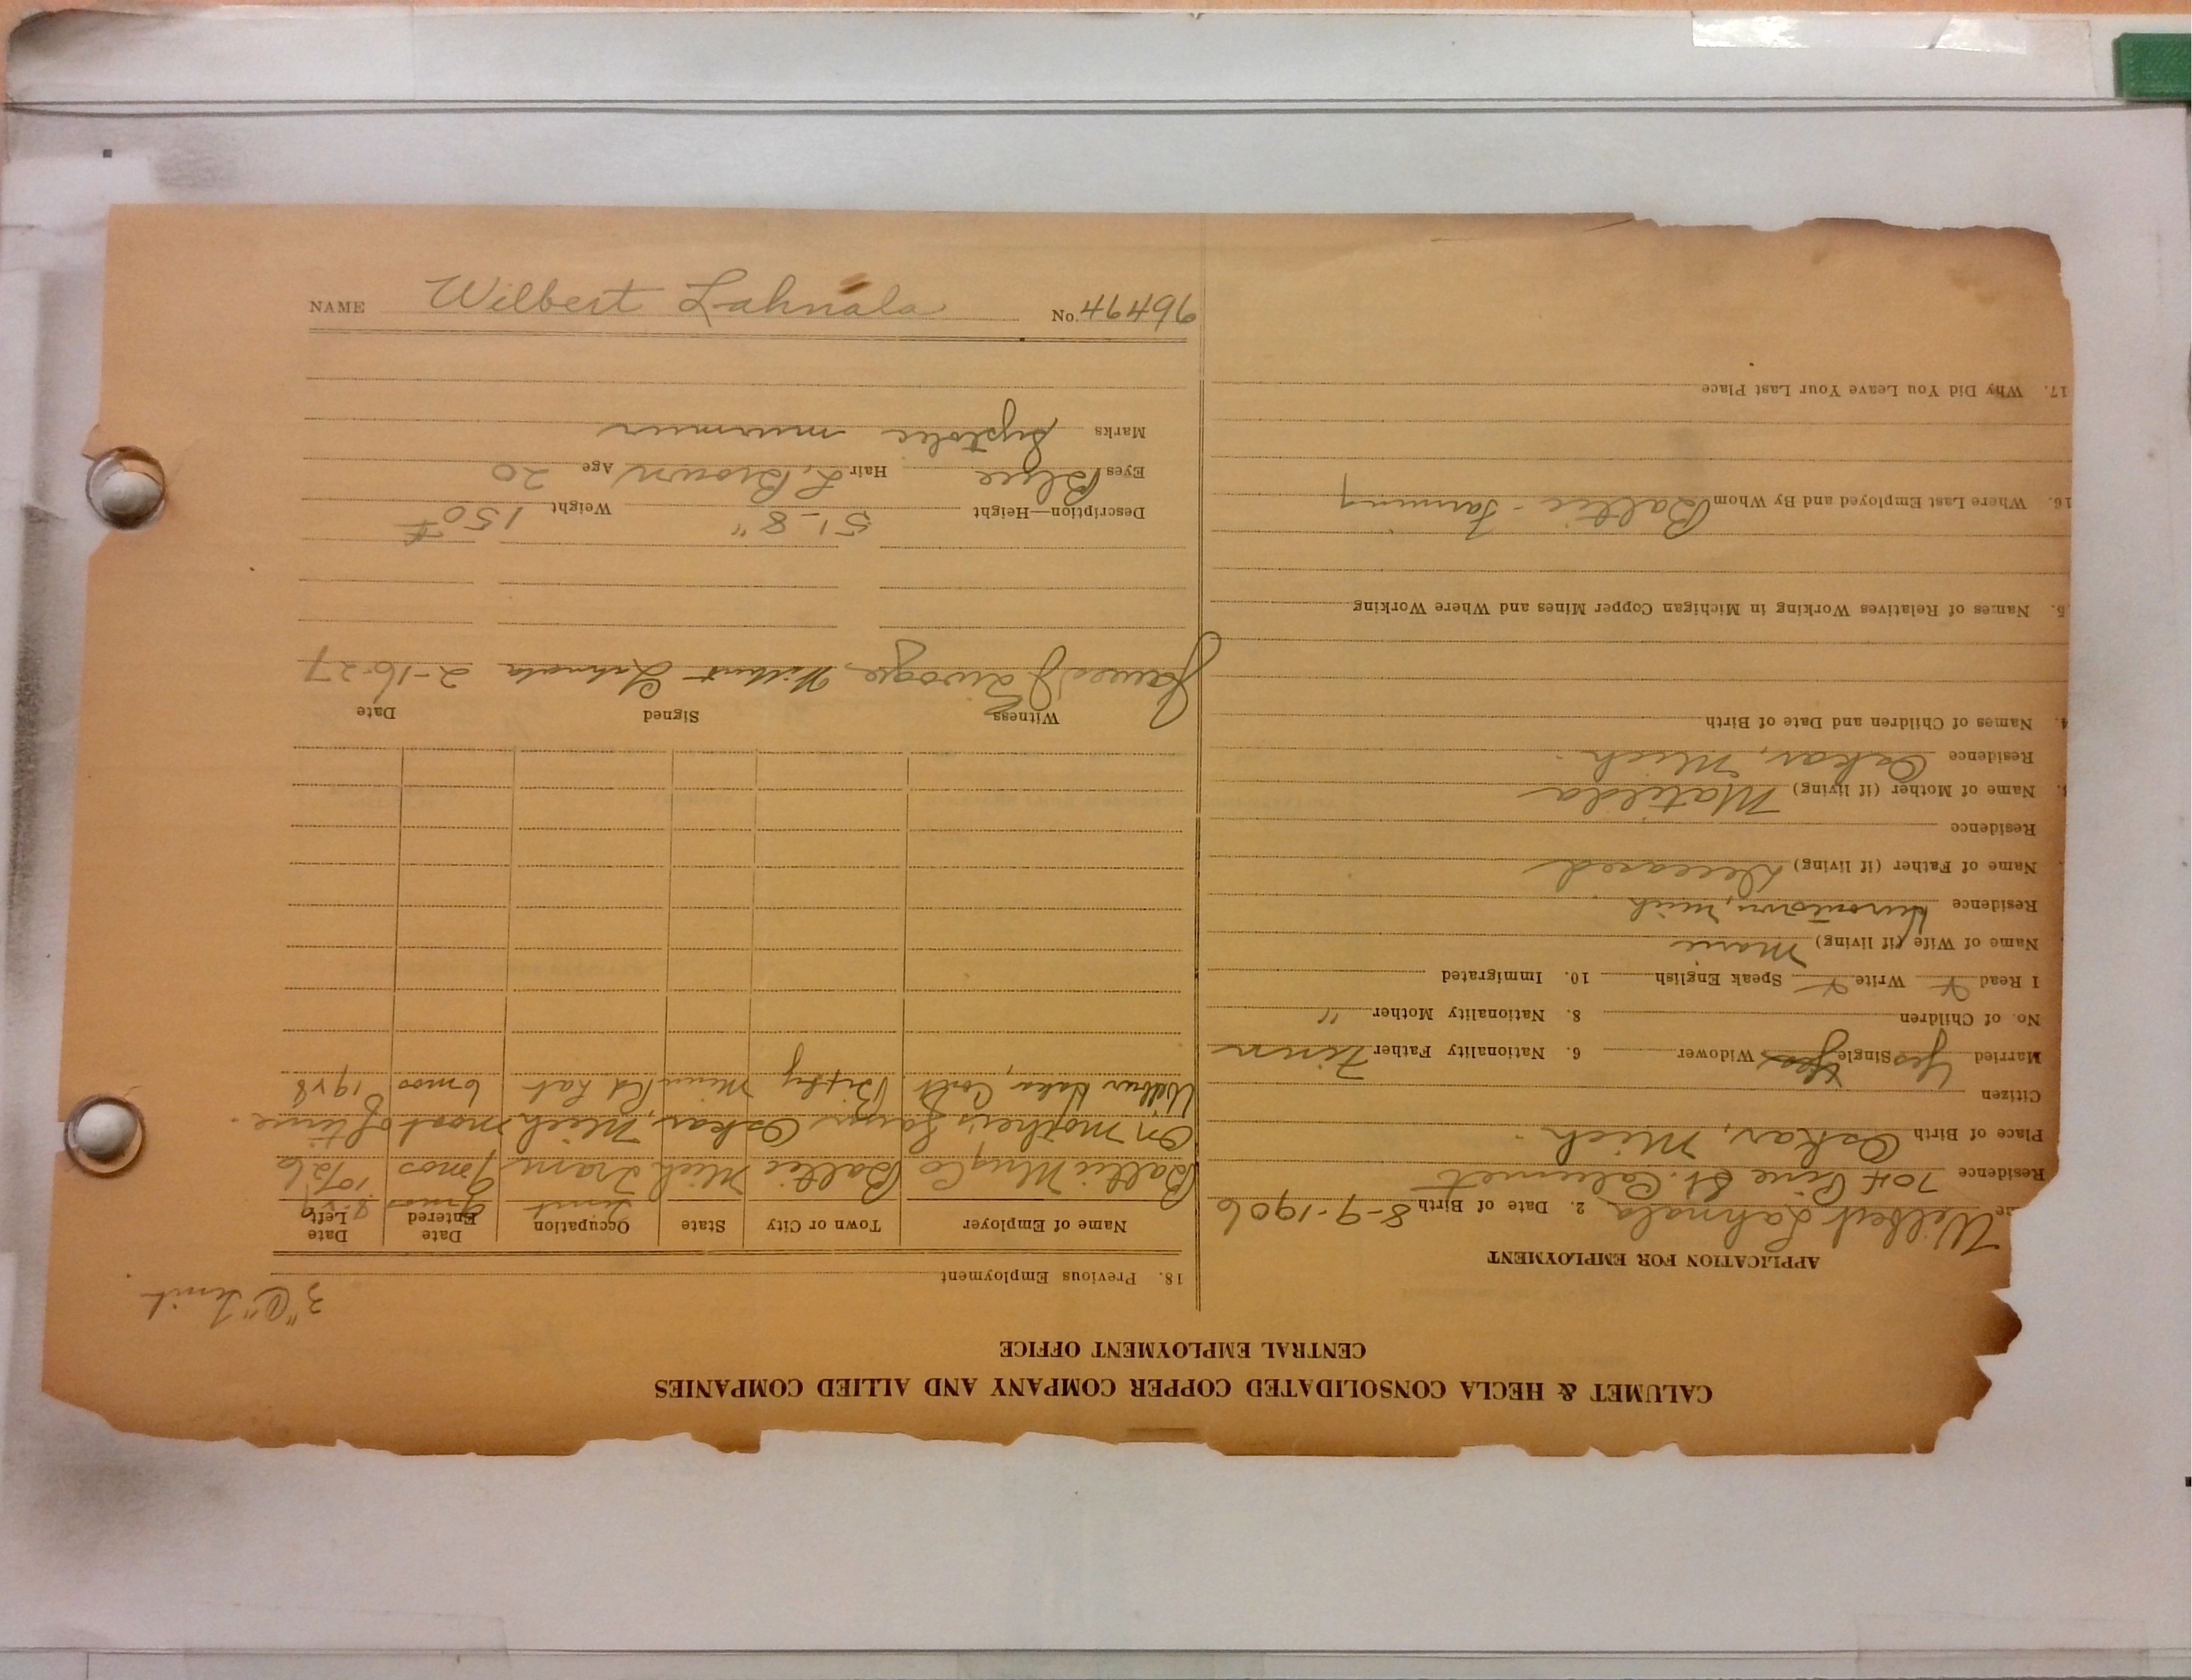 CALUMET & HECLA CONSOLIDATED COPPER COMPANY AND ALLIED COMPANIES
CENTRAL EMPLOYMENT OFFICE
APPLICATION FOR EMPLOYMENT
Wilbert Lahnala 2. Date of Birth 8-9-1906
Residence 704 Pine St. Calumet
Place of Birth Oskar, Mich.
Citizen
Married Yes Single Yes Widower 6. Nationality Father Finn
No. of Children 8. Nationality Mother "
I Read Write Speak English 10. Immigrated
Name of Wife (if living) Marie
Residence Hurontown, Mich
Name of Father (if living) Deceased
Residence
Name of Mother (if living) Matilda
Residence Oskar, Mich.
4. Names of Children and Date of Birth
5. Names of Relatives Working in Michigan Copper Mines and Where Working
16. Where Last Employed and By Whom Baltic - Farming
17. Why Did You Leave Your Last Place
3 "C"
18. Previous Employment
Name of Employer Town or City State Occupation Date Entered Date Left
Baltic Mng Co Baltic Mich Tram 7 mos 10/26
On Mother's Farm Oskar, Mich most of time.
6 mos 1928
Witness Signed Date
James Wilbert Lahnala 2-16-27
Description—Height 5'-8" Weight 150#
Eyes Blue Hair L. Brown Age 20
Marks Systolic murmur
NAME Wilbert Lahnala No. 46496